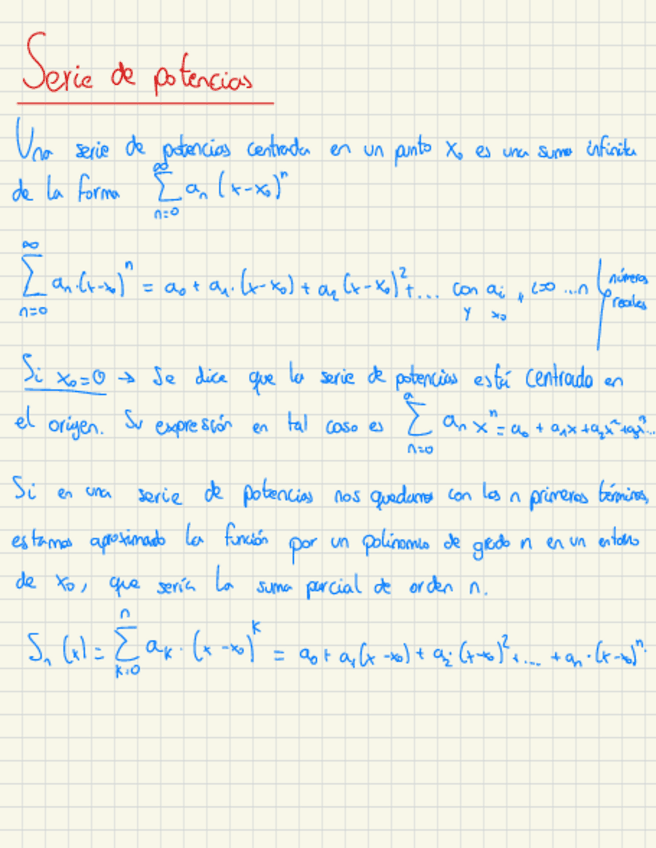 Serie de potencias
Una serie de potencias centrada en un punto x₀ es una suma infinita
de la forma ∑_{n=0}^{∞} aₙ (x-x₀)ⁿ
∑_{n=0}^{∞} aₙ·(x-x₀)ⁿ = a₀ + a₁·(x-x₀) + a₂(x-x₀)²+... con aᵢ y x₀, i=0...n números reales
Si x₀=0 → Se dice que la serie de potencias está centrada en
el origen. Su expresión en tal caso es ∑_{n=0} aₙ xⁿ = a₀ + a₁x + a₂x² + a₃x³...
Si en una serie de potencias nos quedamos con los n primeros términos,
estamos aproximado la función por un polinomio de grado n en un entorno
de x₀, que sería la suma parcial de orden n.
Sₙ(x) = ∑_{k=0}^{n} aₖ·(x-x₀)ᵏ = a₀ + a₁(x-x₀) + a₂·(x-x₀)²+... + aₙ·(x-x₀)ⁿ.